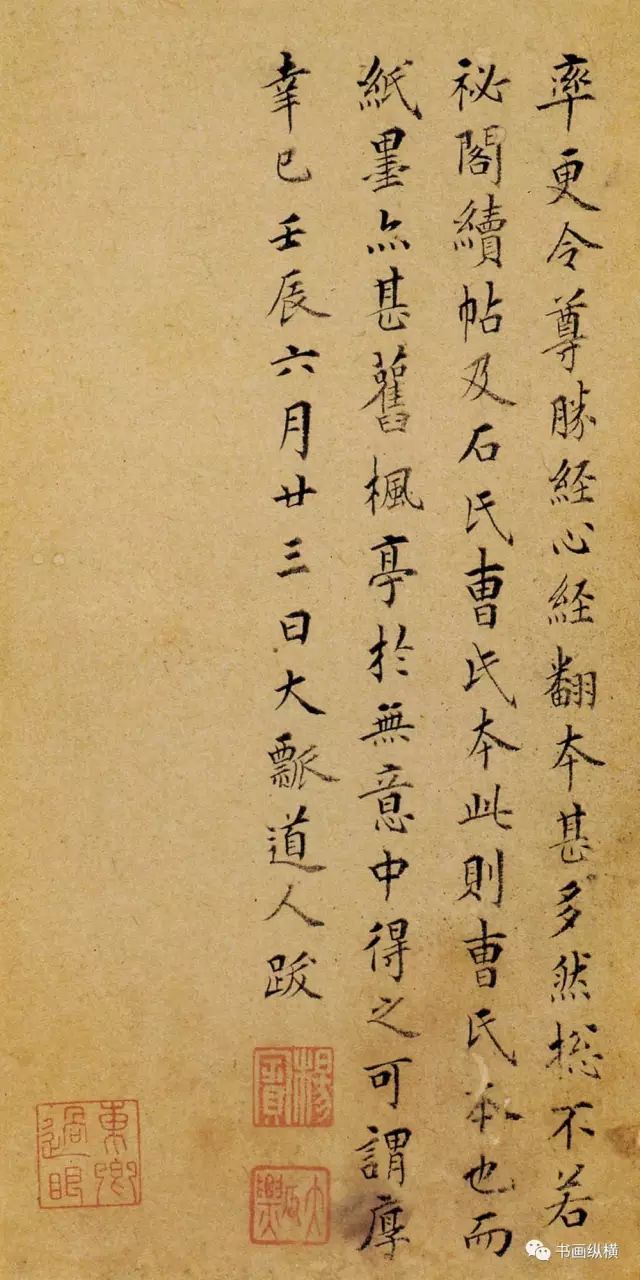 率更令尊勝経心経翻本甚多然揔不若
祕閣續帖及石氏曺氏本此則曺氏本也而
紙墨亦甚舊楓亭於無意中得之可謂厚
幸已壬辰六月廿三日大瓢道人跋
楊賓
大瓢
東卿過眼
书画纵横